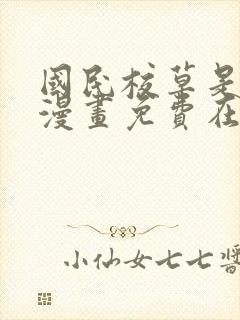 國民校草是
漫畫免費在
小仙女七七醬